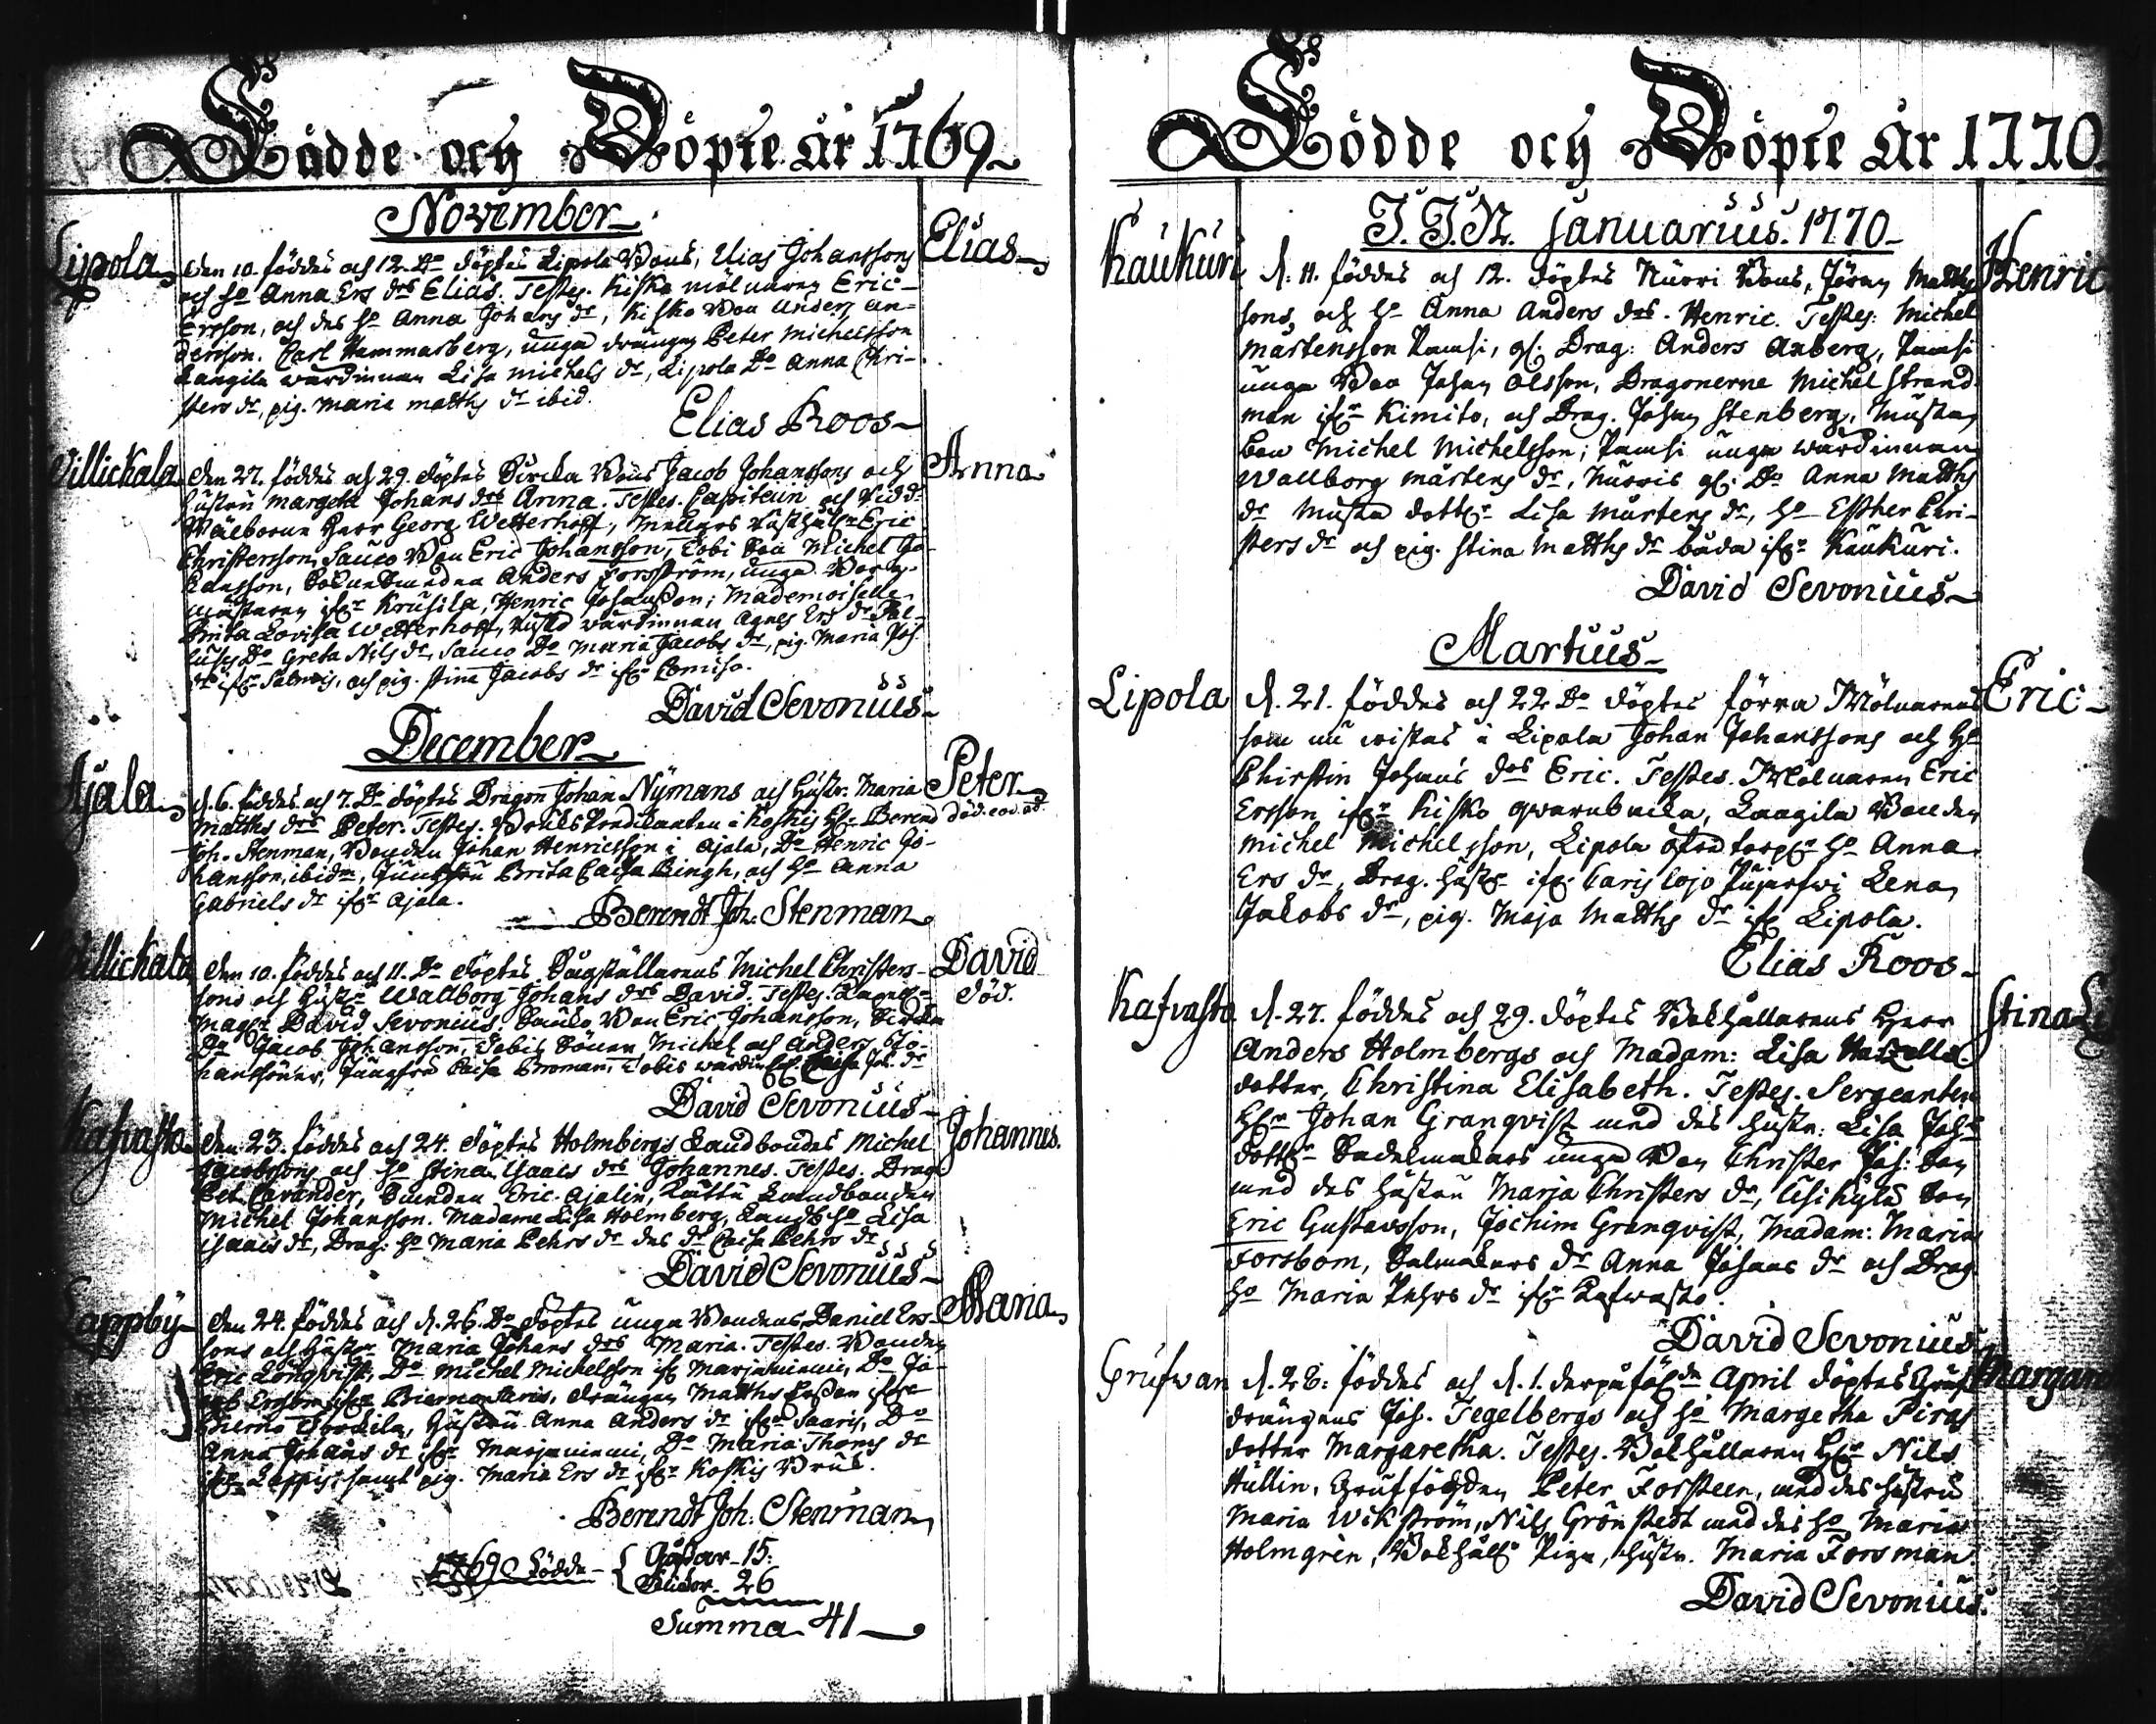 Födde och Döpte År 1769
November
Lipola
Den 10. föddes och 12. Do döptes Lipola Bons, Elias Johanssons
Elias
och ho Anna Ers drs Elias. Testes. Kisko mölnaren Eric
Ersson, och des ho Anna Johans dr, Kisko Bon Anders An=
dersson. Carl Hammarberg, unga drängen Peter Michelsson
Langila wärdinnan Lisa Michels dr, Lipola Do Anna Chri-
sters dr, pig. Maria Matths dr ibid.
Elias Roos
Villickala
Den 27. föddes och 29. döptes Bons Jacob Johanssons och
Anna
hustru Margeta Johans drs Anna. Testes. Capiteun och
Wälborne Herr Georg Wetterhoff, Eric
Christersson, Sauco Bon Eric Johansson, Tobi Bon Michel Jo-
hansson, Anders Forsström, unga
ifr Krusila, Henric Johansson; Mademoiselle
Brita Lovisa Wetterhoff, wärdinnan Agnes Ers dr
Do Greta Nils dr, Sauco Do Maria Jacobs dr, pig. Maria Joh.
dr ifr Salmois, och pig. Stina Jacobs dr ifr
David Sevonius
December
Ajala
d. 6. föddes och 7. Do döptes Dragon Johan Nymans och Hustr. Maria
Peter
Matths drs Peter. Testes. Bruks Predikanten i Koskis Hr Berend
död. eod. ad
Joh. Stenman, Bonden Johan Henricsson i Ajala, Do Henric Jo-
hansson, ibidm, Jungfru Brita Caisa Bingh, och ho Anna
Gabriels dr ifr Ajala.
Berendt Joh. Stenman
Villickala
Den 10. föddes och 11. Do döptes Michel Christers-
David
sons och hustr Wallborg Johans drs David. Testes.
död.
Magr David Sevonius. Sauko Bon Eric Johansson,
Do Jacob Johansson, Tobis Söner Michel och Anders Jo-
hanssöner, Jungfru Caisa Broman, Tobis wärdin Caisa Joh. dr
David Sevonius
Kafvasto
Den 23. föddes och 24. döptes Holmbergs Landbondes Michel
Johannes.
Jacobssons och ho Stina Isaacs drs Johannes. Testes. Drag.
Pet. Cavander, Eric Ajalin, Landbonden
Michel Johansson. Madame Lisa Holmberg, Landb. ho Lisa
Isaacs dr, Drag: ho Maria Pehrs dr des dr Caisa Pehrs dr
David Sevonius
Lappby
Den 24. föddes och d. 26. Do döptes unga Bondens Daniel Ers-
Maria
sons och hustr. Maria Johans drs Maria. Testes. Bonden
Eric Lönqvist, Do Michel Michelsson ifr Marjaniemi, Do Ja-
cob Ersson ifr, drängen Matths ifr
Bierno, Hustru Anna Anders dr ifr Saaris, Do
Anna Johans dr ifr Marjaniemi, Do Maria Thoms dr
ifr Lappis, samt pig. Maria Ers dr ifr Koskis Bruk.
Berendt Joh. Stenman
1769 Födde { Gåssar 15.
Flickor 26
Summa 41
Födde och Döpte År 1770
J.J.N. Januarius. 1770
Kaukuri
d. 11. föddes och 12. döptes Nuori Bons, Jöran Matths
Henric
sons, och ho Anna Anders drs Henric. Testes: Michel
Mårtensson Pamsi, gl. Drag: Anders Anberg, Pamsi
unga Bon Johan Olsson, Dragonerne Michel Strand
man ifr Kimito, och Drag. Johan Stenberg, Mustan
Bon Michel Michelsson, Pamsi unga wärdinnan
Wallborg Mårtens dr, Nuoris gl. Do Anna Matths
dr Mustan dottr Lisa Mårtens dr, ho Esther Chri-
sters dr och pig. Stina Matths dr båda ifr Kaukuri.
David Sevonius
Martius
Lipola
d. 21. föddes och 22 Do döptes förra Mölnarens
Eric
som nu wistas i Lipola Johan Johanssons och ho
Chirstin Johans drs Eric. Testes. Mölnaren Eric
Ersson ifr Kisko qvarnbacka, Laagila Bonden
Michel Michelsson, Lipola ho Anna
Ers dr, Drag. hustr. ifr Caris Lojo Lena
Jakobs dr, pig. Maja Matths dr ifr Lipola.
Elias Roos
Kafvasto
d. 27. föddes och 29. döptes Bokhållarens Herr
Stina
Anders Holmbergs och Madam: Lisa
dotter, Christina Elisabeth. Testes. Sergeanten
Hr Johan Granqvist med des hustr: Lisa Johs
dottr unga Bon Christer Joh: son
med des hustru Maria Christers dr, Bon
Eric Gustavsson, Jochim Granqvist, Madam: Maria
Forsbom, Anna Johans dr och Drag
ho Maria Pehrs dr ifr Kafwasto.
David Sevonius
Grufwan
d. 28. föddes och d. 1. derpåföljde April döptes Gruf
Margare
drängens Joh. Tegelbergs och ho Margetha Pirs
dotter Margaretha. Testes. Bokhållaren Hr Nils
Hullin, Gruffogden Peter Forsteen, med des hustru
Maria Wikström, Nils Grönstedt med des ho Maria
Holmgren, Bokhålls Piga, hustr. Maria Forsman
David Sevonius.